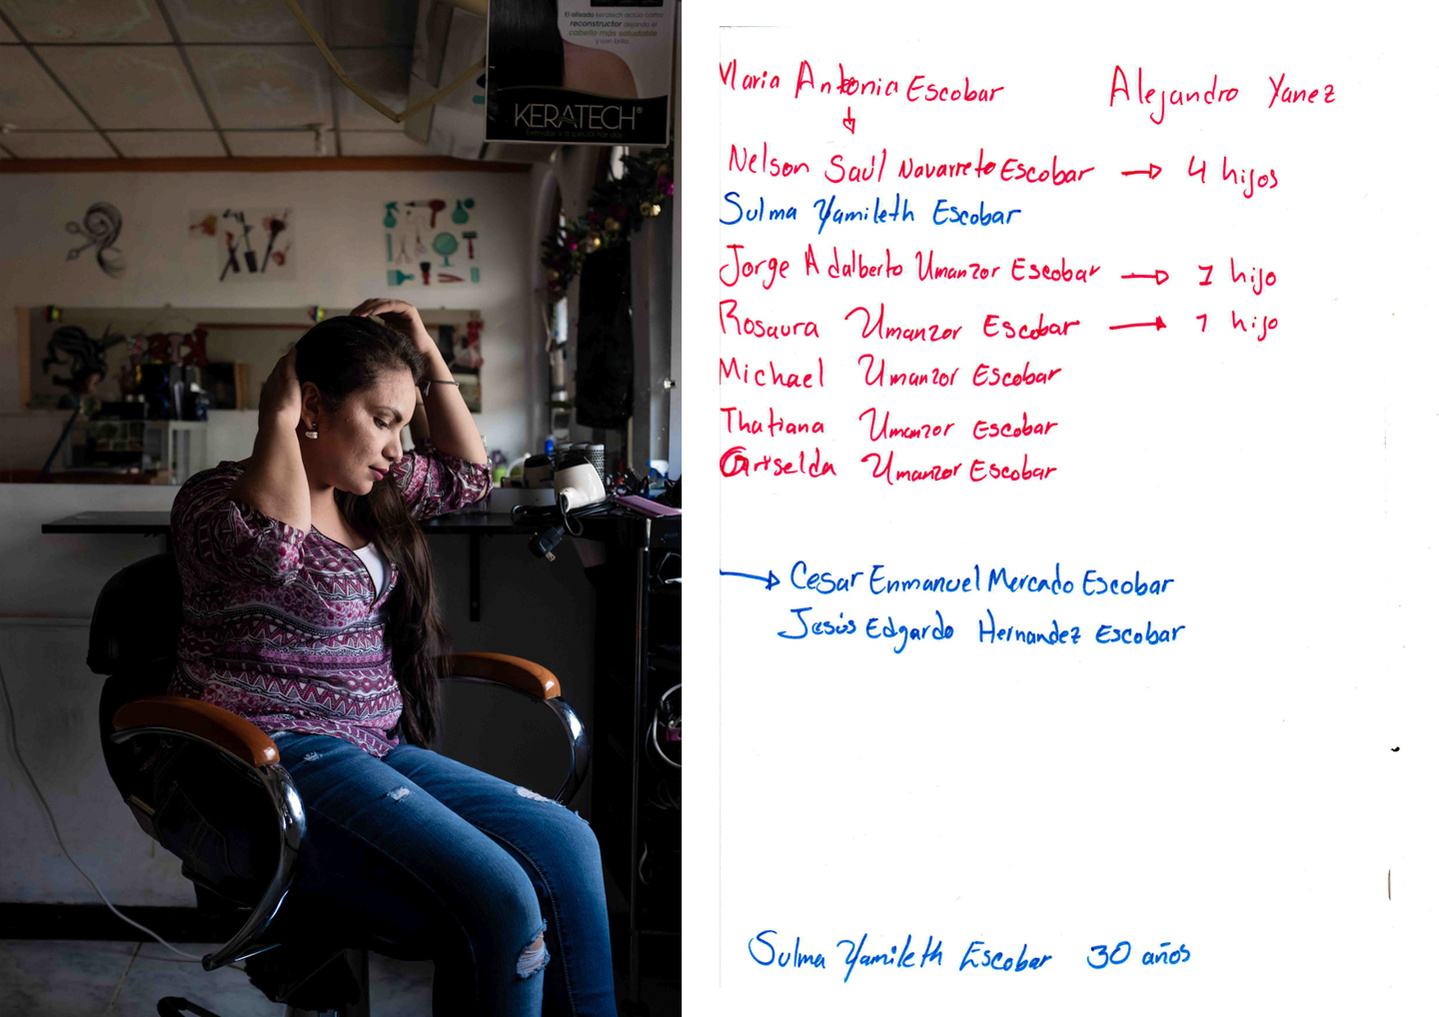 El alisado keratech actúa como
reconstructor dejando el
cabello más saludable
y con brillo.
KERATECH®
Maria Antonia Escobar Alejandro Yanez
Nelson Saúl Navarreto Escobar → 4 hijos
Sulma Yamileth Escobar
Jorge Adalberto Umanzor Escobar → 1 hijo
Rosaura Umanzor Escobar → 1 hijo
Michael Umanzor Escobar
Thatiana Umanzor Escobar
Griselda Umanzor Escobar
→ Cesar Enmanuel Mercado Escobar
Jesús Edgardo Hernandez Escobar
Sulma Yamileth Escobar 30 años